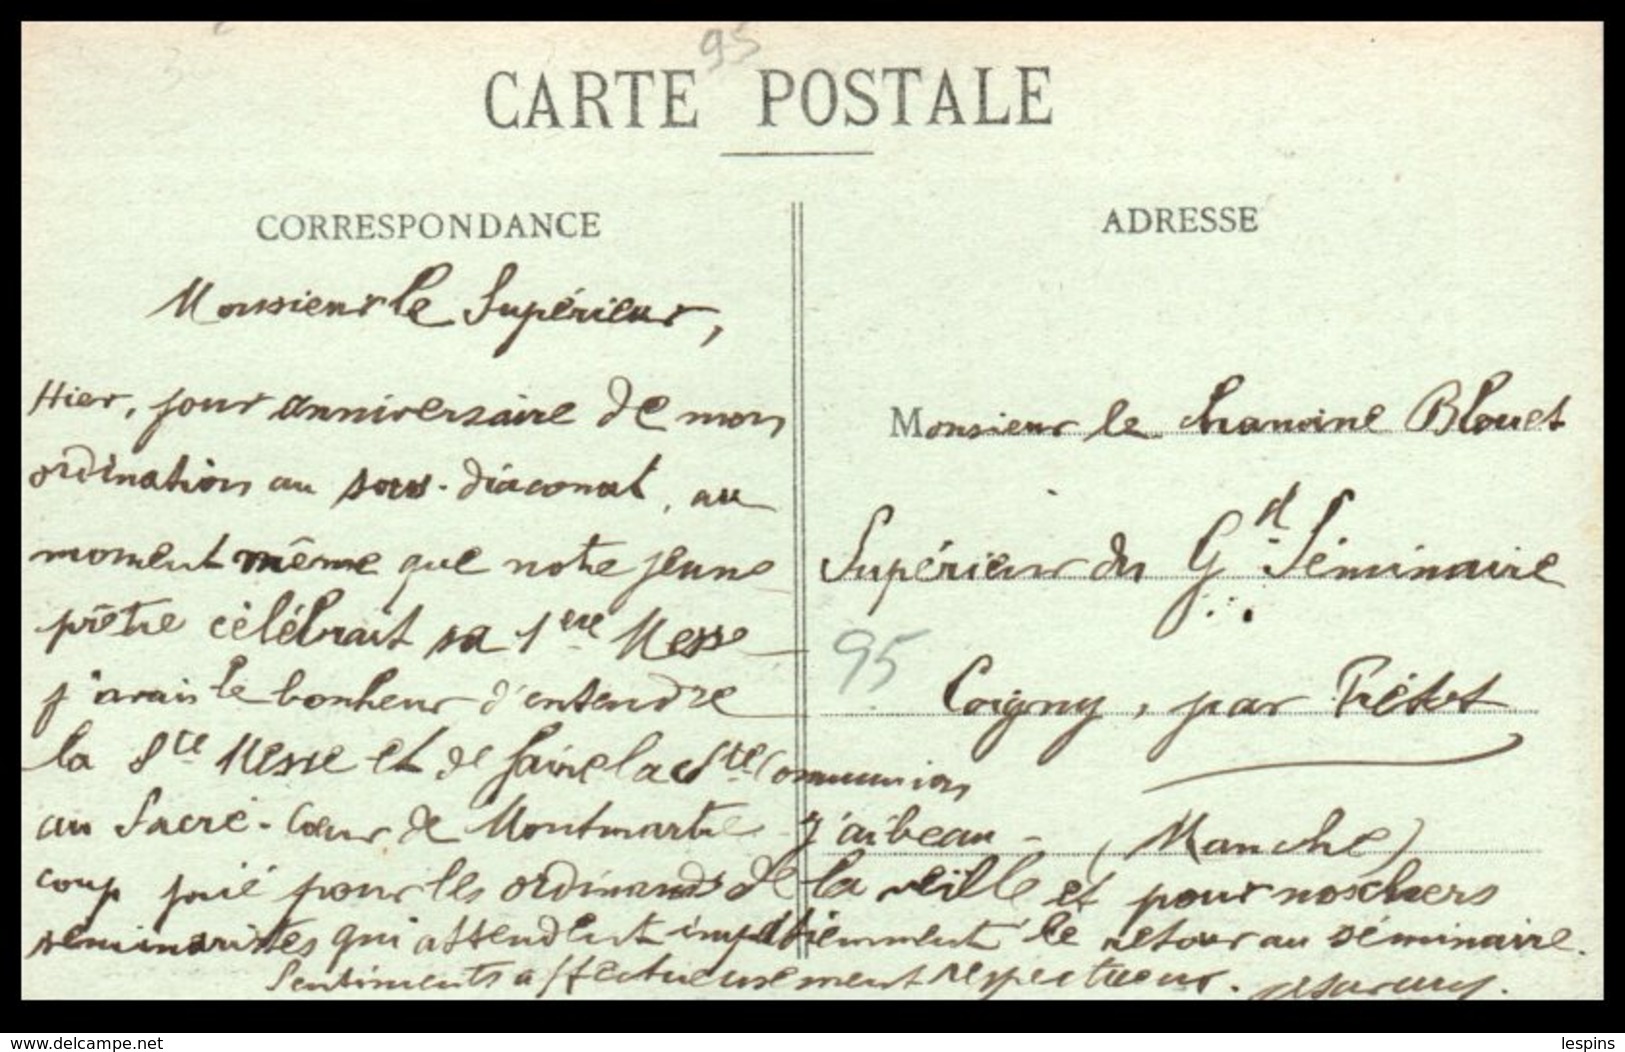 95
CARTE POSTALE
CORRESPONDANCE
ADRESSE
Monsieur le Supérieur,
Hier, jour anniversaire de mon
ordination au sous-diaconat, au
moment même que notre jeune
prêtre célébrait sa 1ère Messe
j'avais le bonheur d'entendre
la Ste Messe et de faire la Ste Communion
au Sacré-Cœur de Montmartre J'ai beau-
coup prié pour les ordinands de la veille et pour nos chers
séminaristes qui attendent impatiemment le retour au séminaire.
Sentiments affectueusement respectueux.
Monsieur le chanoine Blouet
Supérieur du Gd Séminaire
95
Coigny, par Prétot
(Manche)
www.delcampe.net
lespins